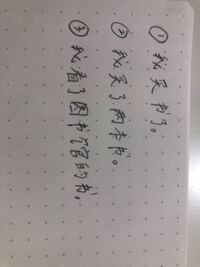 ① 我买书了。
② 我买了两本书。
③ 我看了图书馆的书。